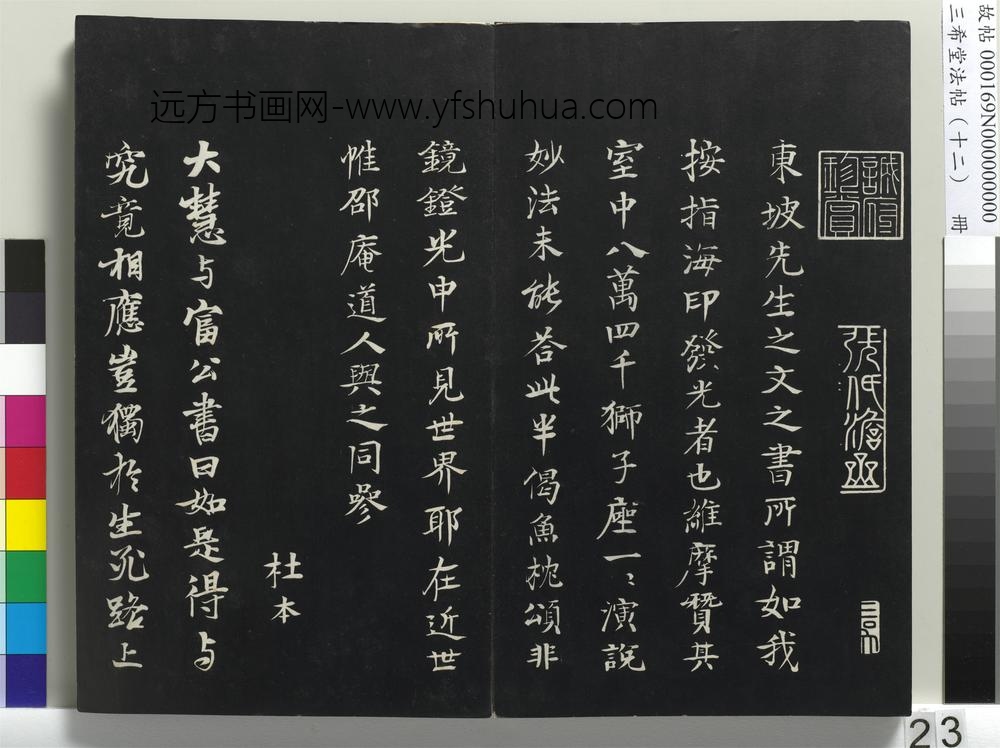 远方书画网-www.yfshuhua.com
故帖 000169N000000000
三希堂法帖（十二） 冊
東坡先生之文之書所謂如我
按指海印發光者也維摩贊其
室中八萬四千獅子座一〻演說
妙法未能答此半偈魚枕頌非
鏡鐙光中所見世界耶在近世
惟邵庵道人與之同參
杜本
大慧与富公書曰如是得与
究竟相應豈獨於生死路上
23